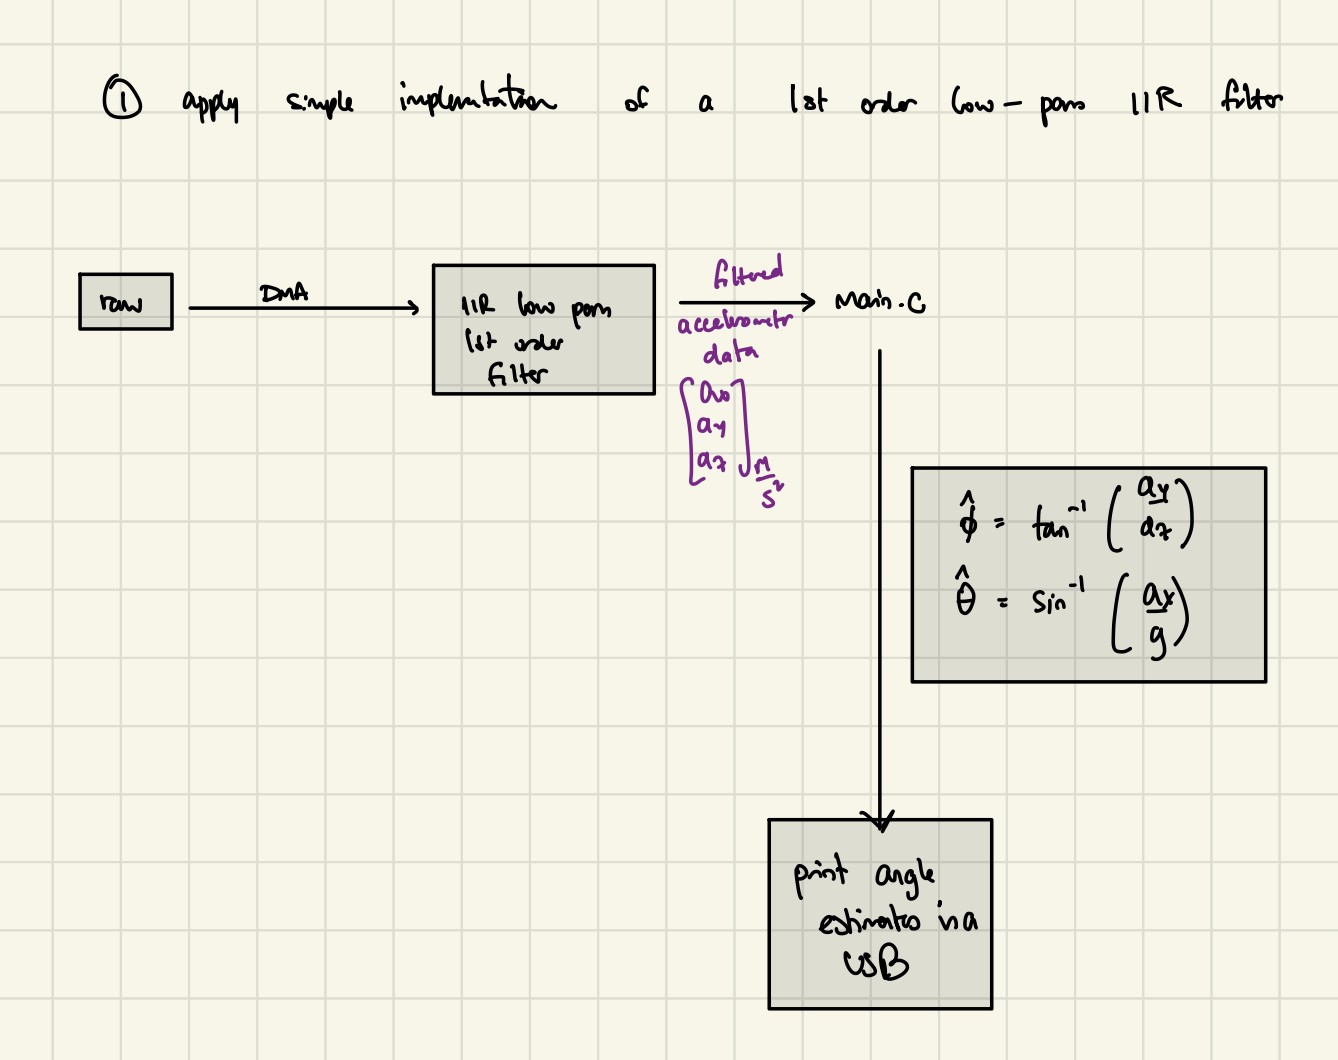 ① apply simple implementation of a 1st order low-pass IIR filter
raw
DMA
IIR low pass
1st order
filter
filtered
accelerometr
data
[ax
ay
az] m/s²
Main.C
φ̂ = tan⁻¹ (ay/az)
θ̂ = sin⁻¹ (ax/g)
print angle
estimates via
USB